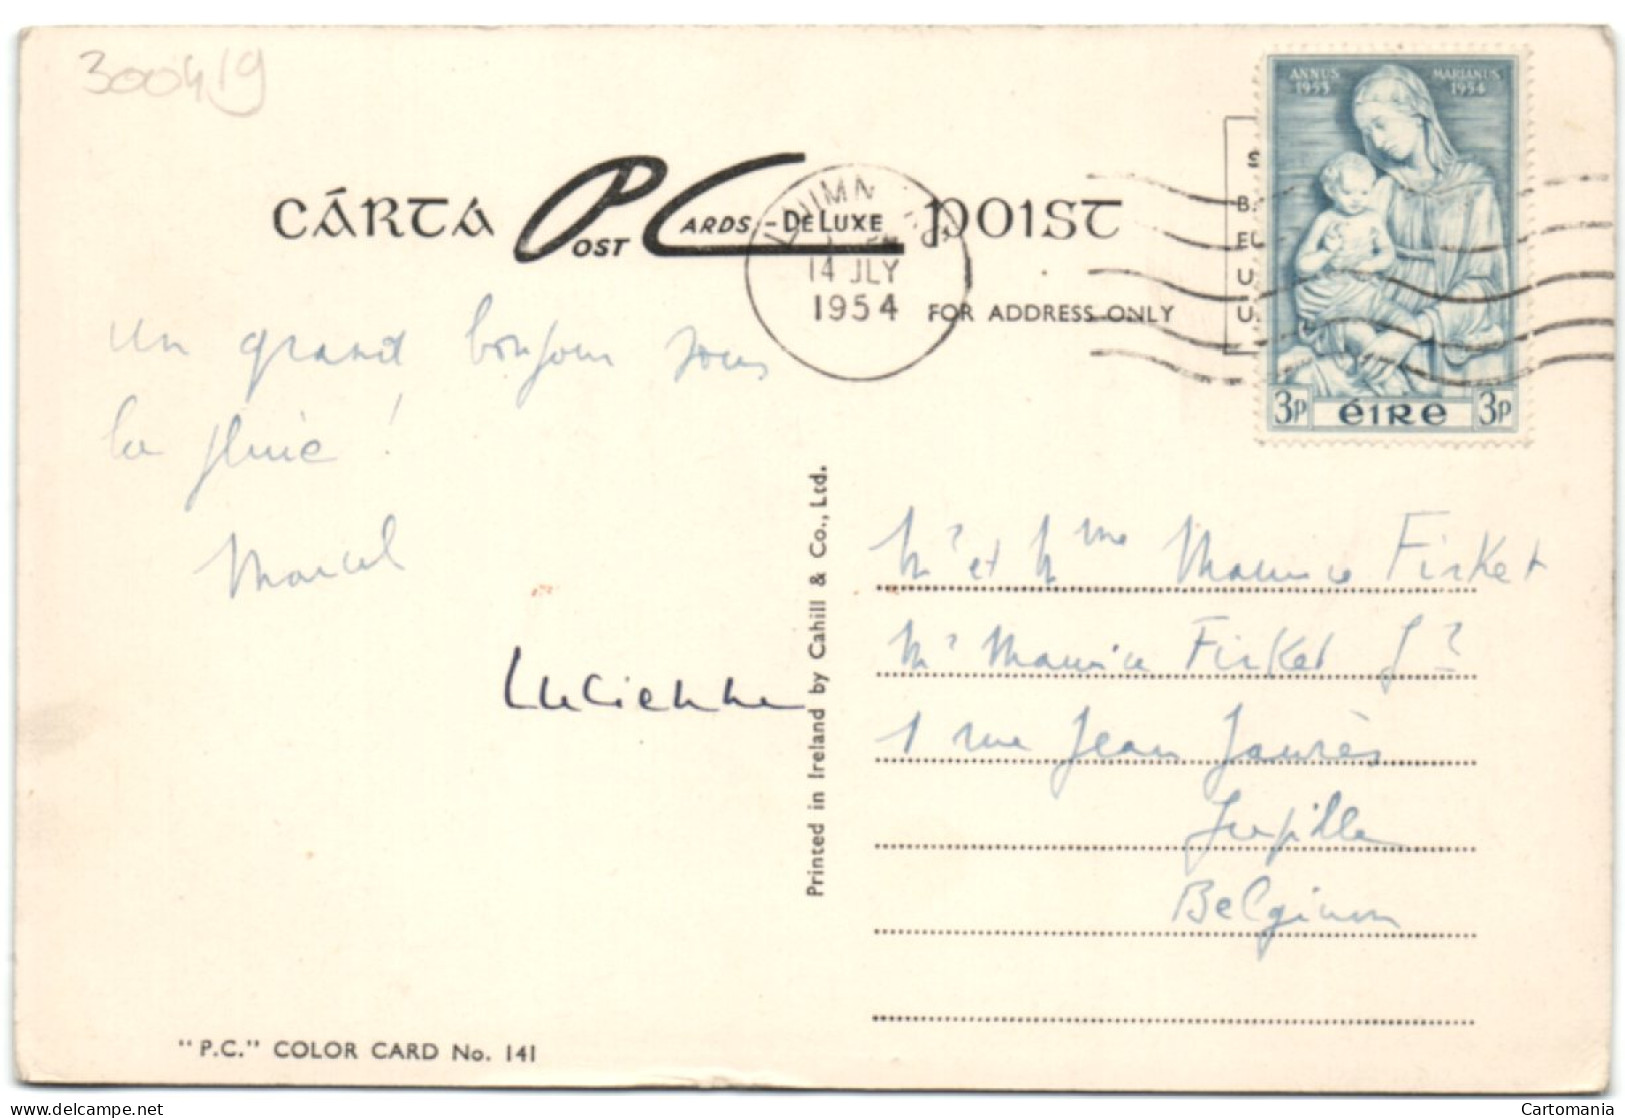 300419
ANNUS 1953
MARIANUS 1954
CÁRTA POST CARDS - DE LUXE POIST
14 JLY
1954
FOR ADDRESS ONLY
3p éire 3p
un grand bonjour sous
la pluie !
Marcel
Lucienne
Mr et Mme Maurice Firket
Mr Maurice Firket Jr
1 rue Jean Jaurès
Jupille
Belgium
Printed in Ireland by Cahill & Co., Ltd.
"P.C." COLOR CARD No. 141
Cartomania